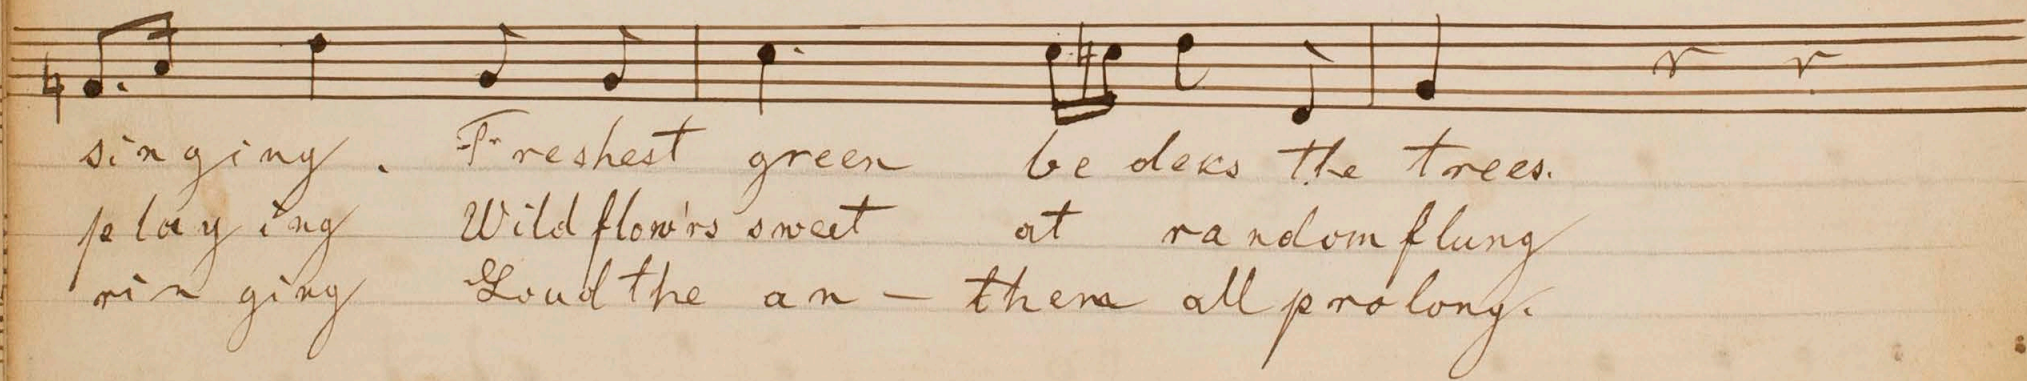 singing. Freshest green be deks the trees.
playing Wild flow'rs sweet at random flung
rin ging Loud the an - them all prolong.